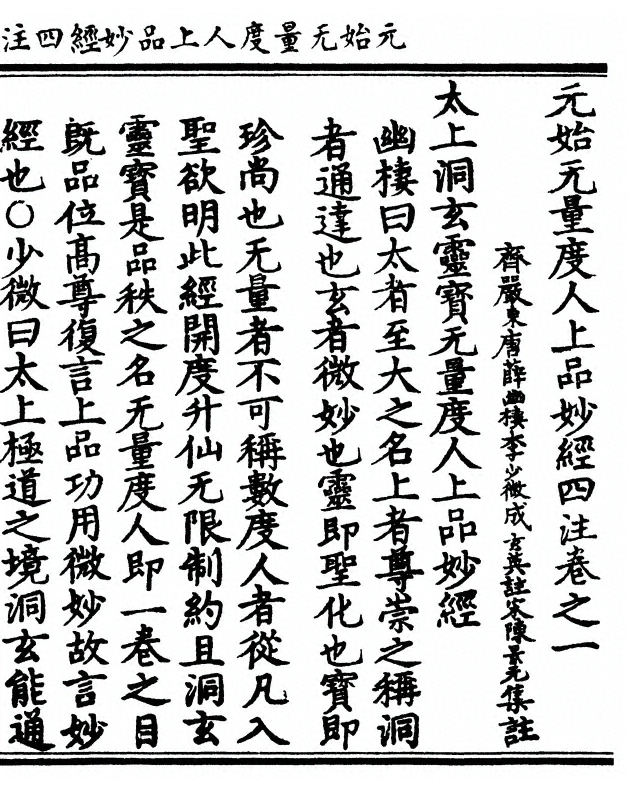 元始无量度人上品妙經四注
元始无量度人上品妙經四注卷之一
齊嚴東唐薛幽棲李少微成玄英註宋陳景元集註
太上洞玄靈寶无量度人上品妙經
幽棲曰太者至大之名上者尊崇之稱洞
者通達也玄者微妙也靈即聖化也寶即
珍尚也无量者不可稱數度人者從凡入
聖欲明此經開度升仙无限制約且洞玄
靈寶是品秩之名无量度人即一卷之目
既品位高尊復言上品功用微妙故言妙
經也○少微曰太上極道之境洞玄能通